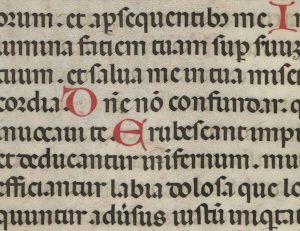 orum. et apsequentibꝰ me. I
lumina faciem tuam sup suuꝫ
tuum. et salua me in tua mise
cordia. Dn̄e nō confundar. q
inuocaui te. Erubescant imp
et deducantur infernum. mu
efficiantur labia dolosa que lo
quuntur aduſus iustū iniqta